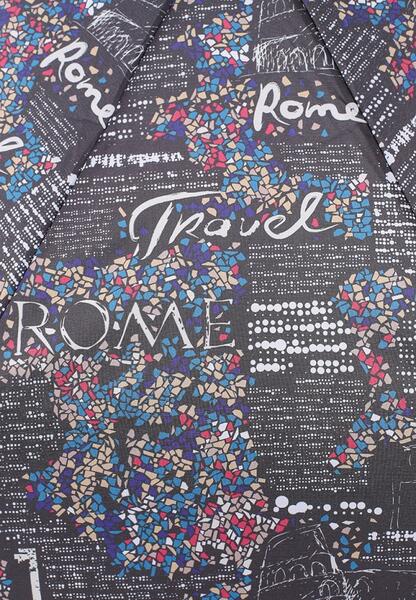 Rome
Rome
Travel
ROME